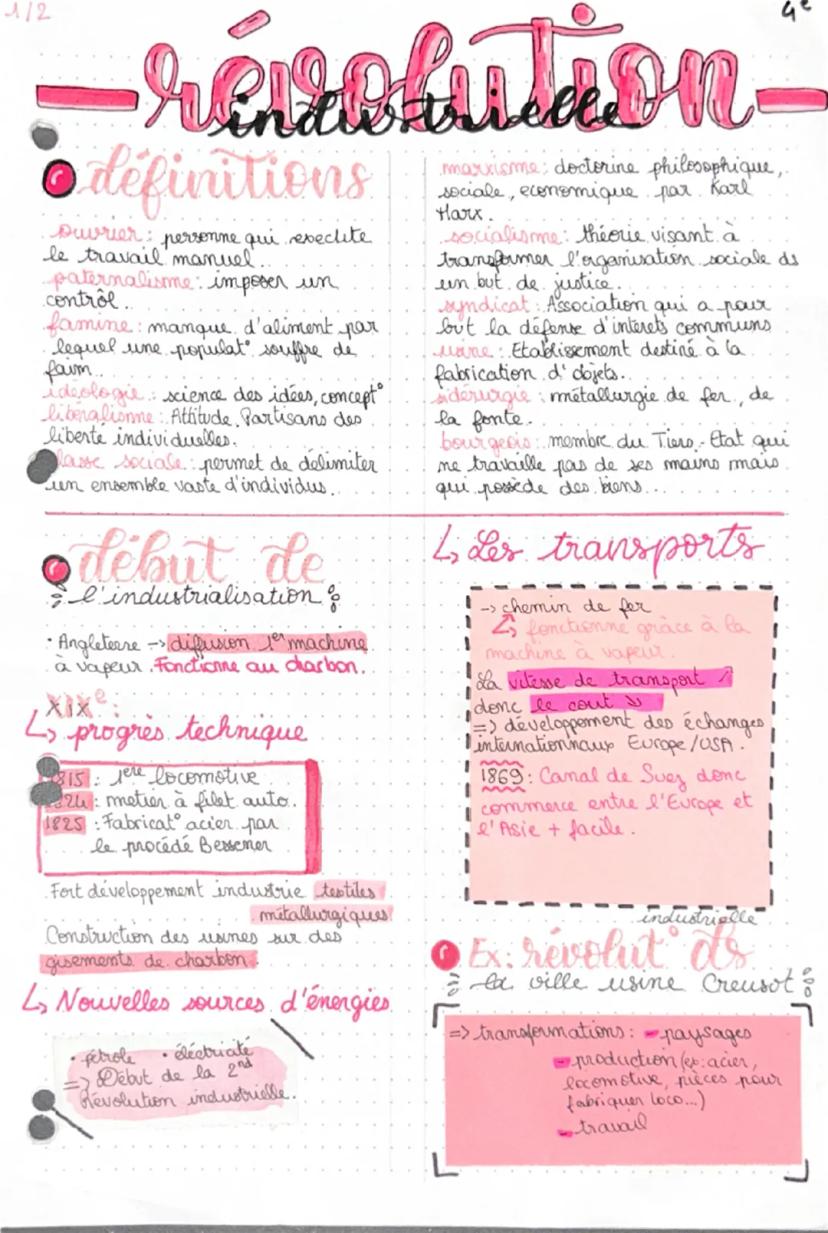 1/2
4e
révolution
industrielle
définitions
ouvrier : personne qui execute
le travail manuel.
paternalisme : imposer un
contrôl.
famine : manque d'aliment par
lequel une populat° souffre de
faim.
idéologie : science des idées, concept°
libéralisme : Attitude, Partisans des
liberté individuelles.
lasse sociale : permet de délimiter
un ensemble vaste d'individus.
marxisme : doctorine philosophique,
sociale, economique par Karl
Marx.
socialisme : théorie visant à
transformer l'organisation sociale ds
un but de justice.
syndicat : Association qui a pour
but la défense d'intérets communs
usine : Etablissement destiné à la
fabrication d'objets.
sidérurgie : métallurgie de fer, de
la fonte.
bourgeois : membre du Tiers-Etat qui
ne travaille pas de ses mains mais
qui possède des biens...
début de
l'industrialisation
• Angleterre → diffusion 1er machine
à vapeur. Fonctionne au charbon.
XIXe :
↳ progrès technique
1815 : 1ere locomotive
1824 : metier à filet auto.
1825 : Fabricat° acier par
le procédé Bessemer
Fort développement industrie textiles
métallurgiques
Construction des usines sur des
gisements de charbon
↳ Nouvelles sources d'énergies
• pétrole • électricité
=> Début de la 2nd
Révolution industrielle.
↳ Les transports
→ chemin de fer
↳ fonctionne grâce à la
machine à vapeur.
La vitesse de transport ↗
donc le cout ↘
=> développement des échanges
internationnaux Europe/USA.
1869 : Canal de Suez donc
commerce entre l'Europe et
l'Asie + facile.
industrielle
Ex: révolut° ds
la ville usine Creusot
=> transformations : - paysages
- production (ex: acier,
locomotive, pièces pour
fabriquer loco...)
- travail